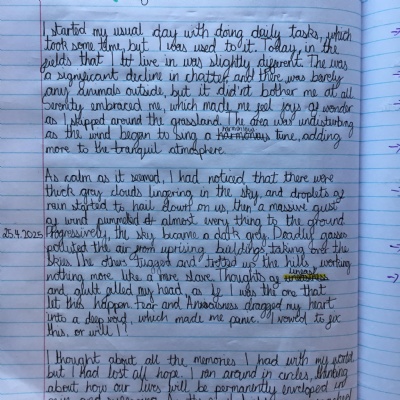 I started my usual day with doing daily tasks, which
took some time, but I was used to it. Today, in the
fields that I live in was slightly different. The was
a significant decline in chatter, and there was barely
any animals outside, but it did'nt bother me at all
Serenity embraced me, which made me feel joys of wonder
as I skipped around the grassland. The area was undisturbing
as the wind began to sing a harmonious tune, adding
more to the tranquil atmosphere
As calm as it seemed, I had noticed that there were
thick grey clouds lingering in the sky, and droplets of
rain started to hail down on us, then a massive gust
of wind pummeled almost every thing to the ground
25.4.2025 Progressively, the sky became a dark grey. Deadly gasses
polluted the air from uprising buildings taking over the
skies. The others tugged and up the hills, working
nothing more, like a mere slave. Thoughts of unease
and guilt filled my head, as if I was the one that
let this happen. Fear and Anxiousness dragged my heart
into a deep void, which made me panic. I vowed to fix
this, or will I!
I thought about all the memories I had with my world
but I had lost all hope. I ran around in circles, thinking
about how our lives will be permanently enveloped in